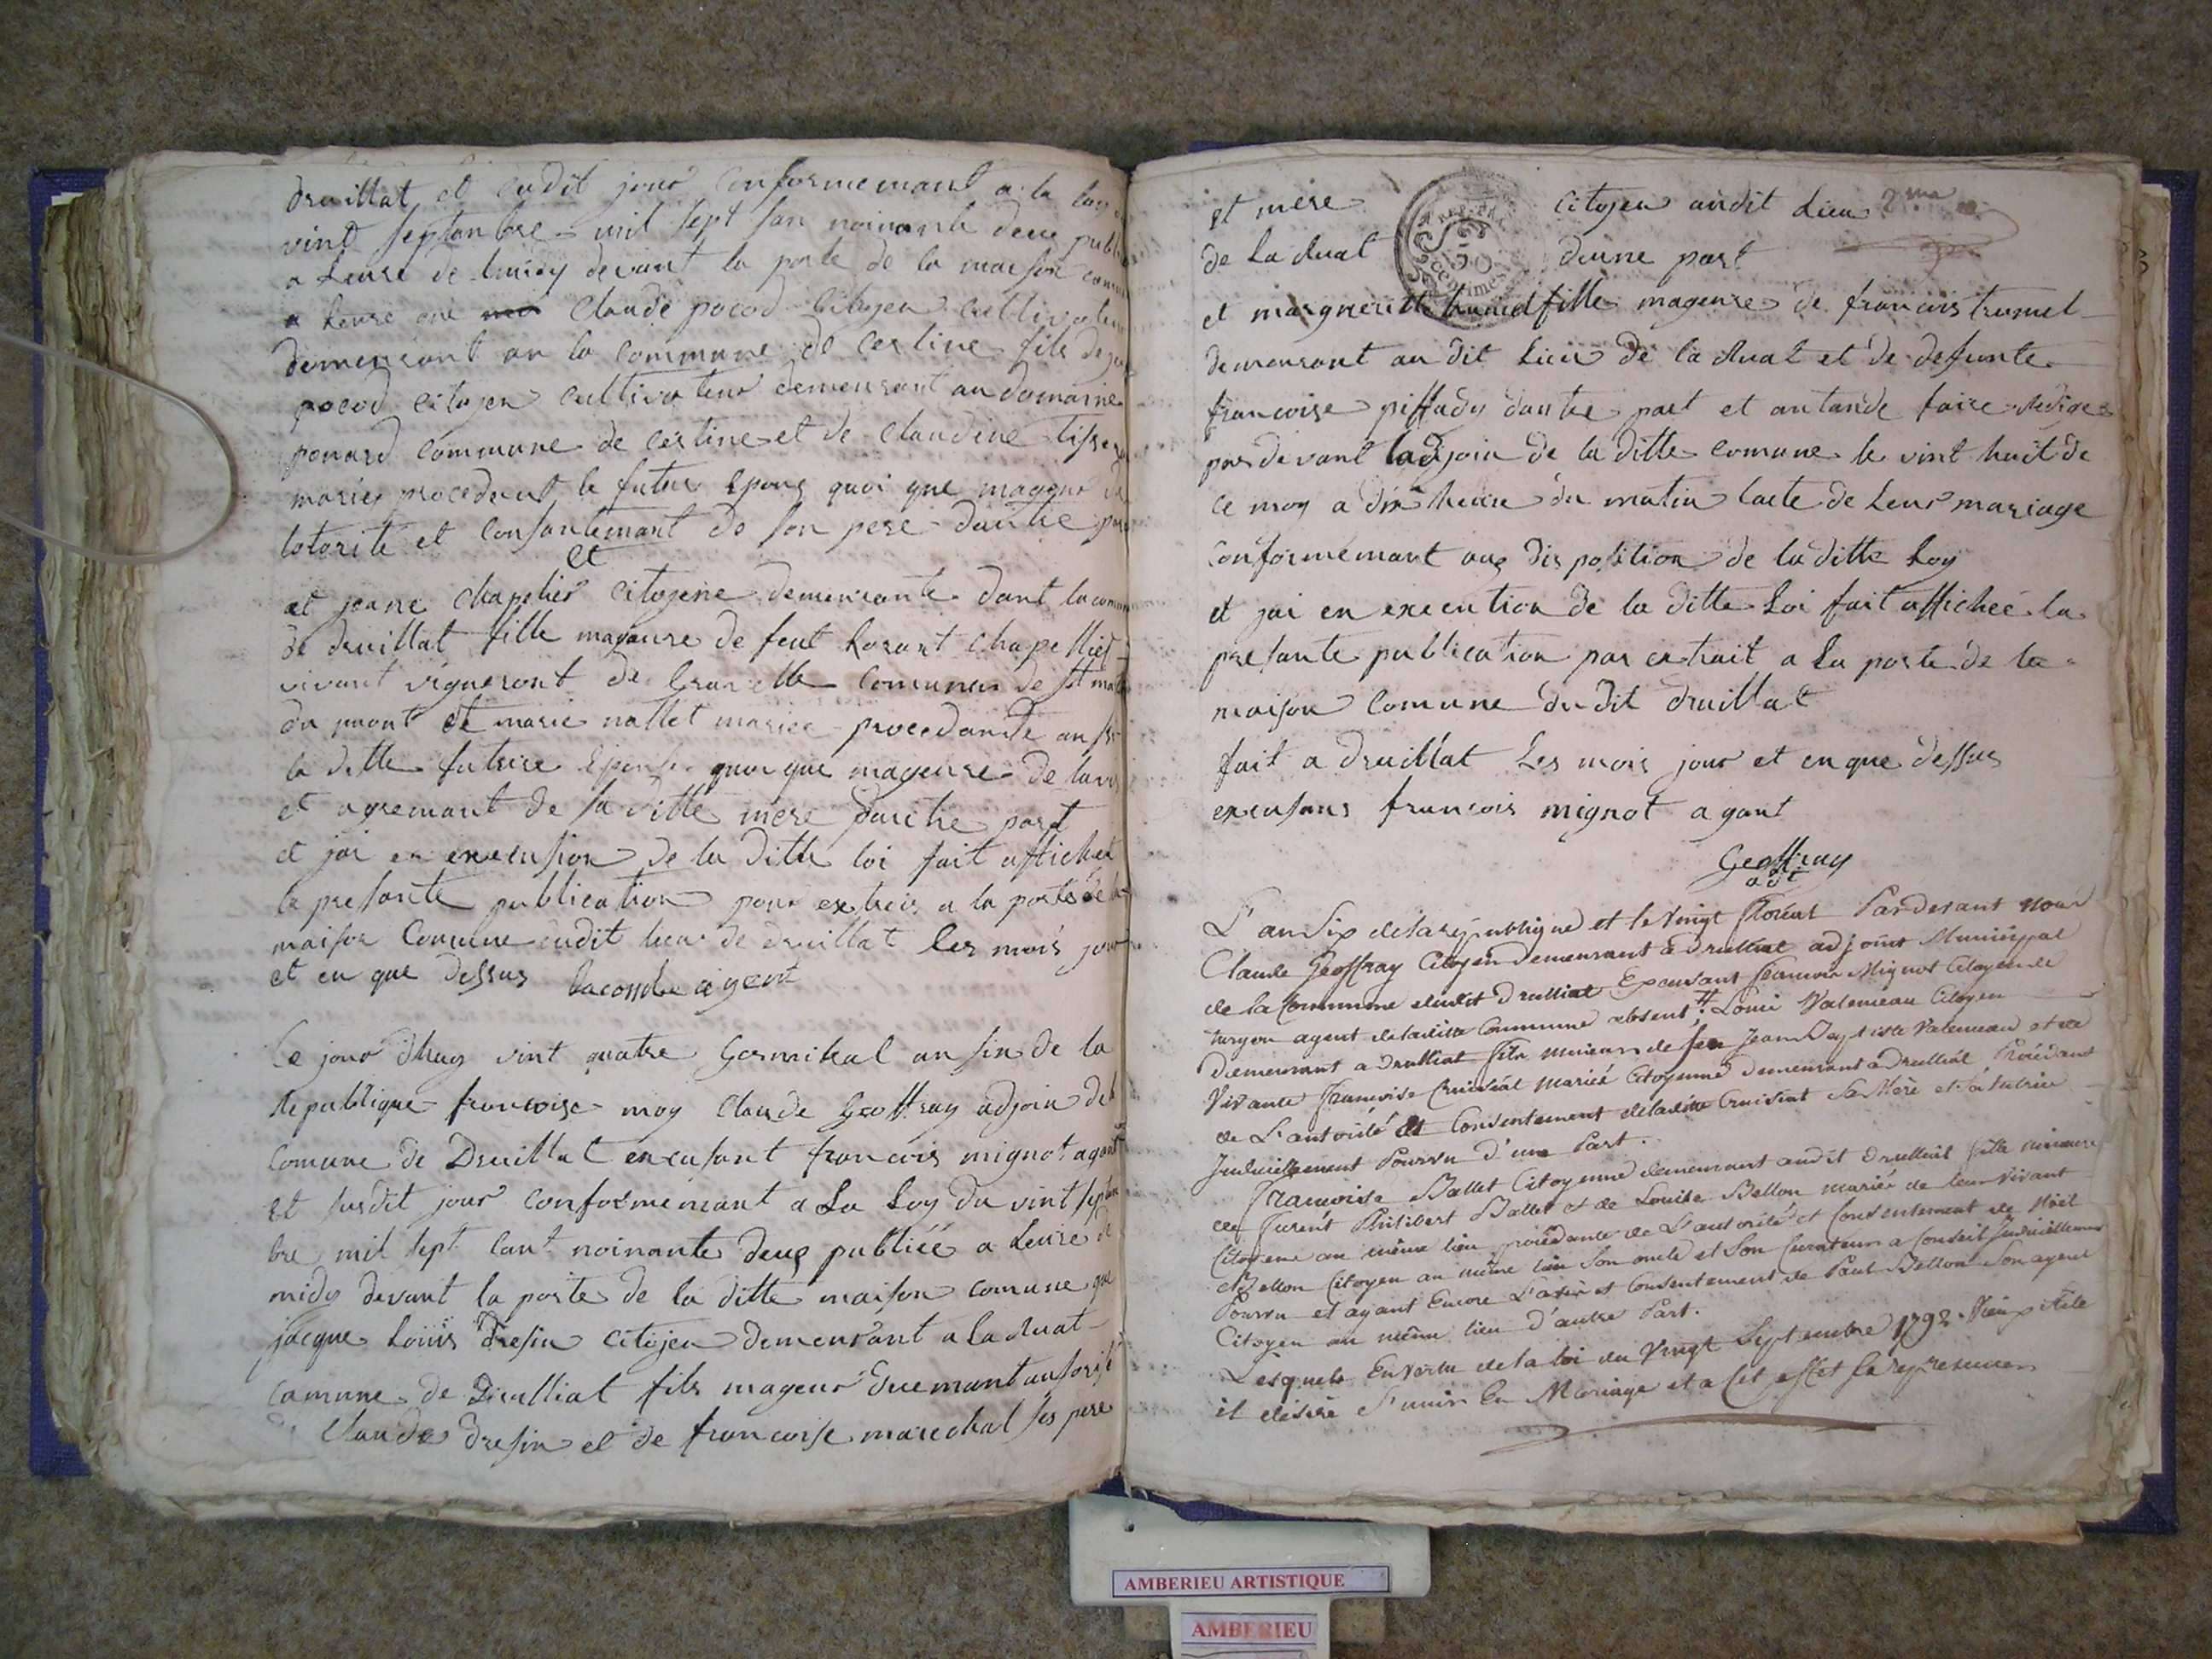 druillat et cudit jour conformemant a la loy
vint septanbre mil sept san noinante deux publ
a heure de midy devant la porte de la maison comm
a heure one claude pocod citoyen cultivateur
demeurant an la commune de certine fils de
pocod citoyen cultivateur demeurant au domaine
ponard commune de certine et de claudine tisser
mariés procedent le futur epoug quoi que mageur de
lotorite et consantemant de son pere dautre part
et
et jeane chapelier citoyene demeurante dant la comun
de druillat fille mageure de feut lorant chapellier
vivant vigneront de comunes de st mar
du mont et marie nallet mariee procedante an
la ditte future Epouse quoi que mageure de lavis
et agremant de sa ditte mere dautre part
et jai en execusion de la ditte loi fait afficher
la presante publication pour extrais a la porte de la
maison Comune cudit lieu de druillat les mois jour
et en que dessus lacombe agent
Ce jour dhuy vint quatre Germinal an six de la
Republique francoise moy Claude Geoffray adjoin de la
Comune de Druillat encusant francois mignot agant
et susdit jour conformemant a La Loy du vint sept
bre mil sept cant noinante deug publiée a heure de
midy devant la porte de la ditte maison comune que
jacque Louis Dresin citojen demeurant a la Ruat
comune de Druilliat fils mageur duemant autorisé
Claude dresin et de francoise marechal ses pere
et mere citoyen audit Lieu 2me
de La Ruat dune part
REP. FRA
50
centimes
et margueritte trumel fille mageure de francois trumel
demeurant au dit Lieu de la Ruat et de defunte
francoise piffady dautre part et antande faire Rediger
par devant ladjoin de la ditte comune le vint huit de
ce moy a dix heure du matin lacte de leur mariage
conformemant aux disposition de la ditte Loy
et jai en execution de la ditte Loi fait affichée la
presante publication par extrait a La porte de la
maison Comune du dit druillat
fait a druillat Les mois jour et en que dessus
excusans francois mignot agant
Geoffray
adt
L'an Six de la republique et le vingt floreal Pardevant nous
Claude Geoffray Citoyen Demeurant à Druillat adjoint Municipal
de la Commune dudit Druilliat Excusant francois Mignot Citoyen
agent de ladite Commune absent. Louis Valenceau Citoyen
Demeurant a Druilliat fils mineur de feu Jean Baptiste Valenceau et de
Vivante francoise Cruisiat mariés Citoyenne demeurant a Druilliat Procédant
de L'autorité et Consentement de ladite Cruisiat Sa Mère et
Judiciellement Pourvu d'une Part.
Francoise Ballet Citoyenne demeurant audit Druilliat fille mineure
de furent Philibert Ballet et de Louise Bellon mariés de leur vivant
Citoyens au même lieu procédante de L'autorité et Consentement de Noël
Bellon Citoyen au même lieu Son oncle et Son Curateur a Conseil Judiciellement
Pourvu et ayant Encore L'avis et Consentement de Paul Bellon Son ayeul
Citoyen au même lieu d'autre Part.
Lesquels En Vertu de la loi du Vingt Septembre 1792 Vieux stile
il désire S'unir En Mariage et a Cet effet Se
AMBERIEU ARTISTIQUE
AMBERIEU